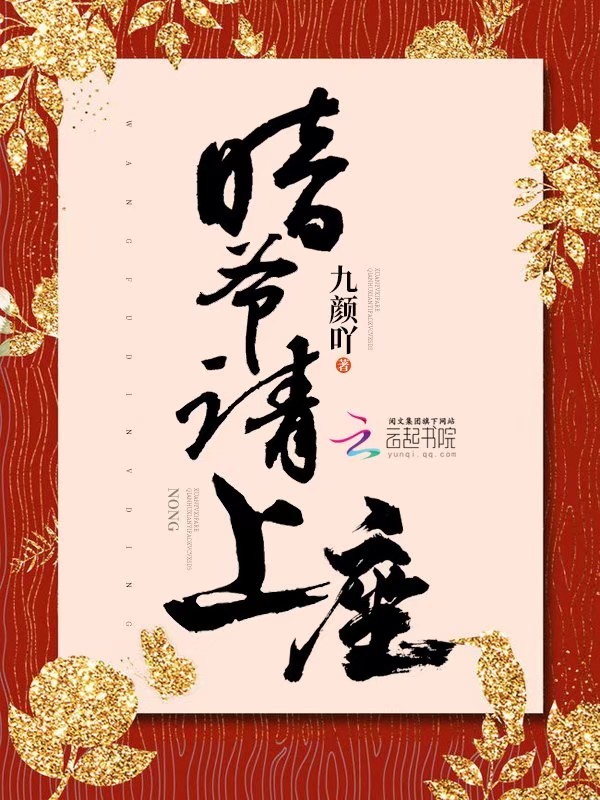 暗爷请上座
九颜吖 著
阅文集团旗下网站
云起书院
yunqi.qq.com
WANGFUDINVDING
NONG